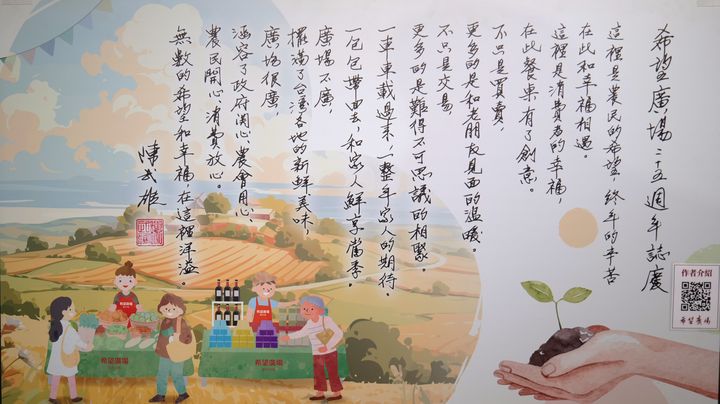 希望廣場二十五週年誌慶
這裡是農民的希望，終年的辛苦
在此和幸福相遇。
這裡是消費者的幸福，
在此餐桌有了創意。
不只是買賣，
更多的是和老朋友見面的溫暖。
不只是交易，
更多的是難得不可思議的相聚。
一車車載過來，一整年家人的期待。
一包包帶回去，和家人鮮享當季。
廣場不廣，
擺滿了台灣各地的新鮮美味，
廣場很廣，
涵容了政府關心、農會用心、
農民開心、消費放心。
無數的希望和幸福，在這裡洋溢。
陳武雄
作者介紹
希望廣場
希望廣場
希望廣場
希望廣場